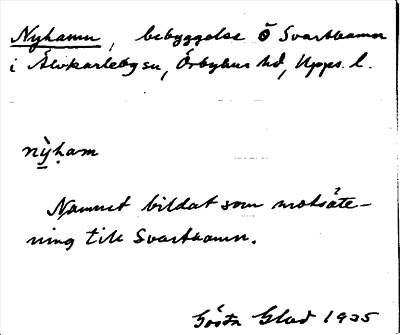 Nyhamn, bebyggelse Ö Svarthamn
i Älvkarleby sn, Örbyhus hd, Upps. l.
nỳ̲ḥam
Namnet bildat som motsätt-
ning till Svarthamn.
Gösta Glad 1935